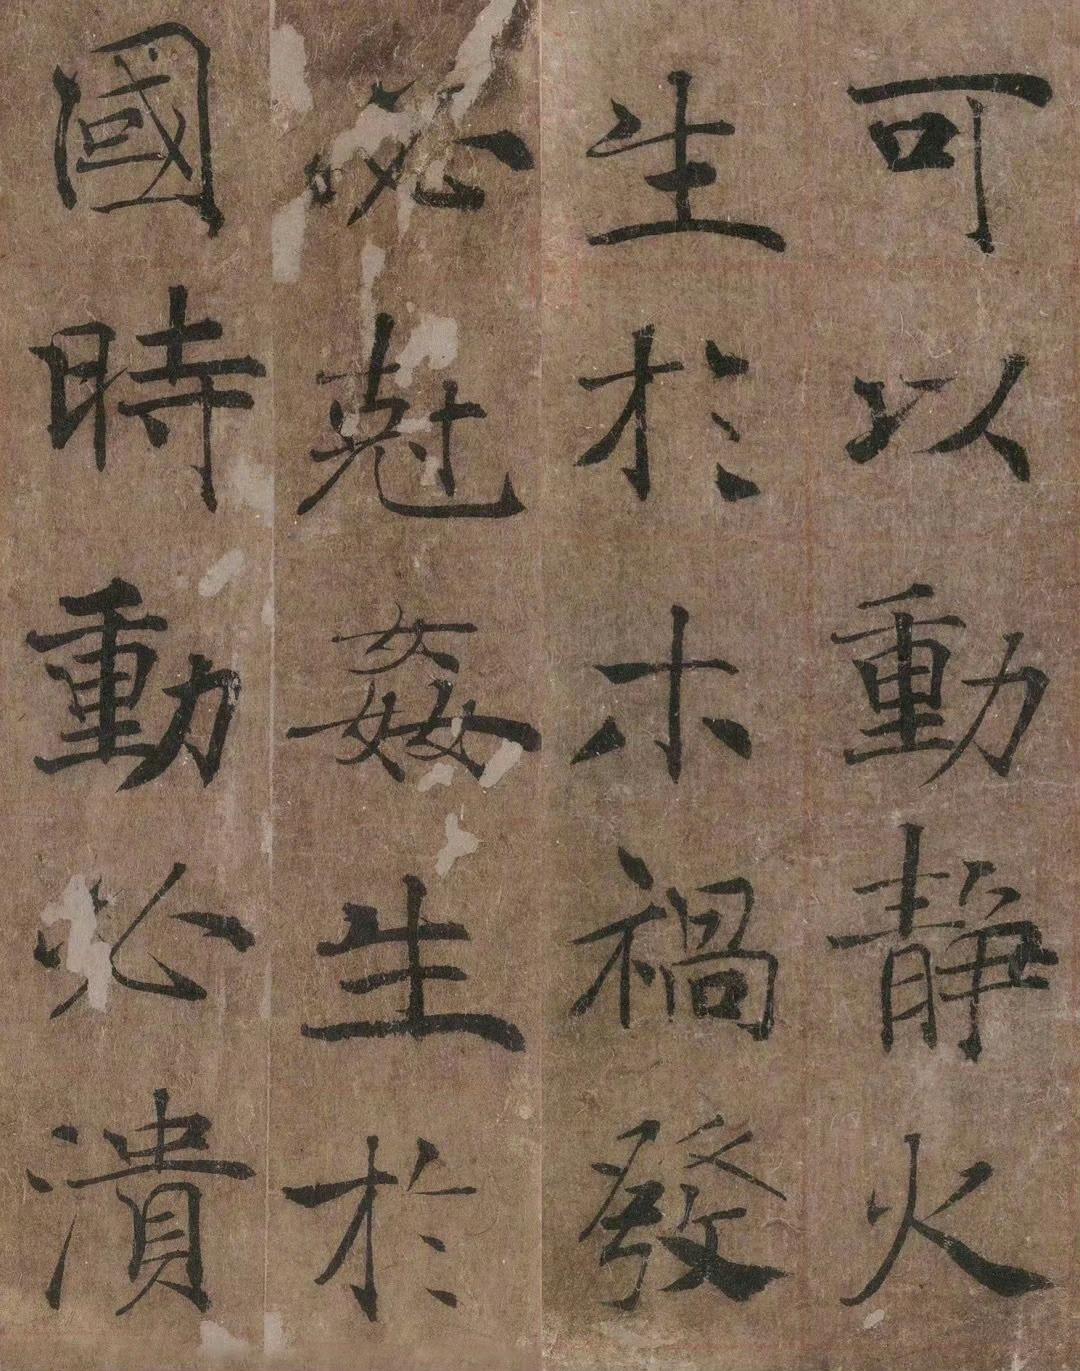 可以動靜火
生於木禍發
必尅姦生於
國時動必潰